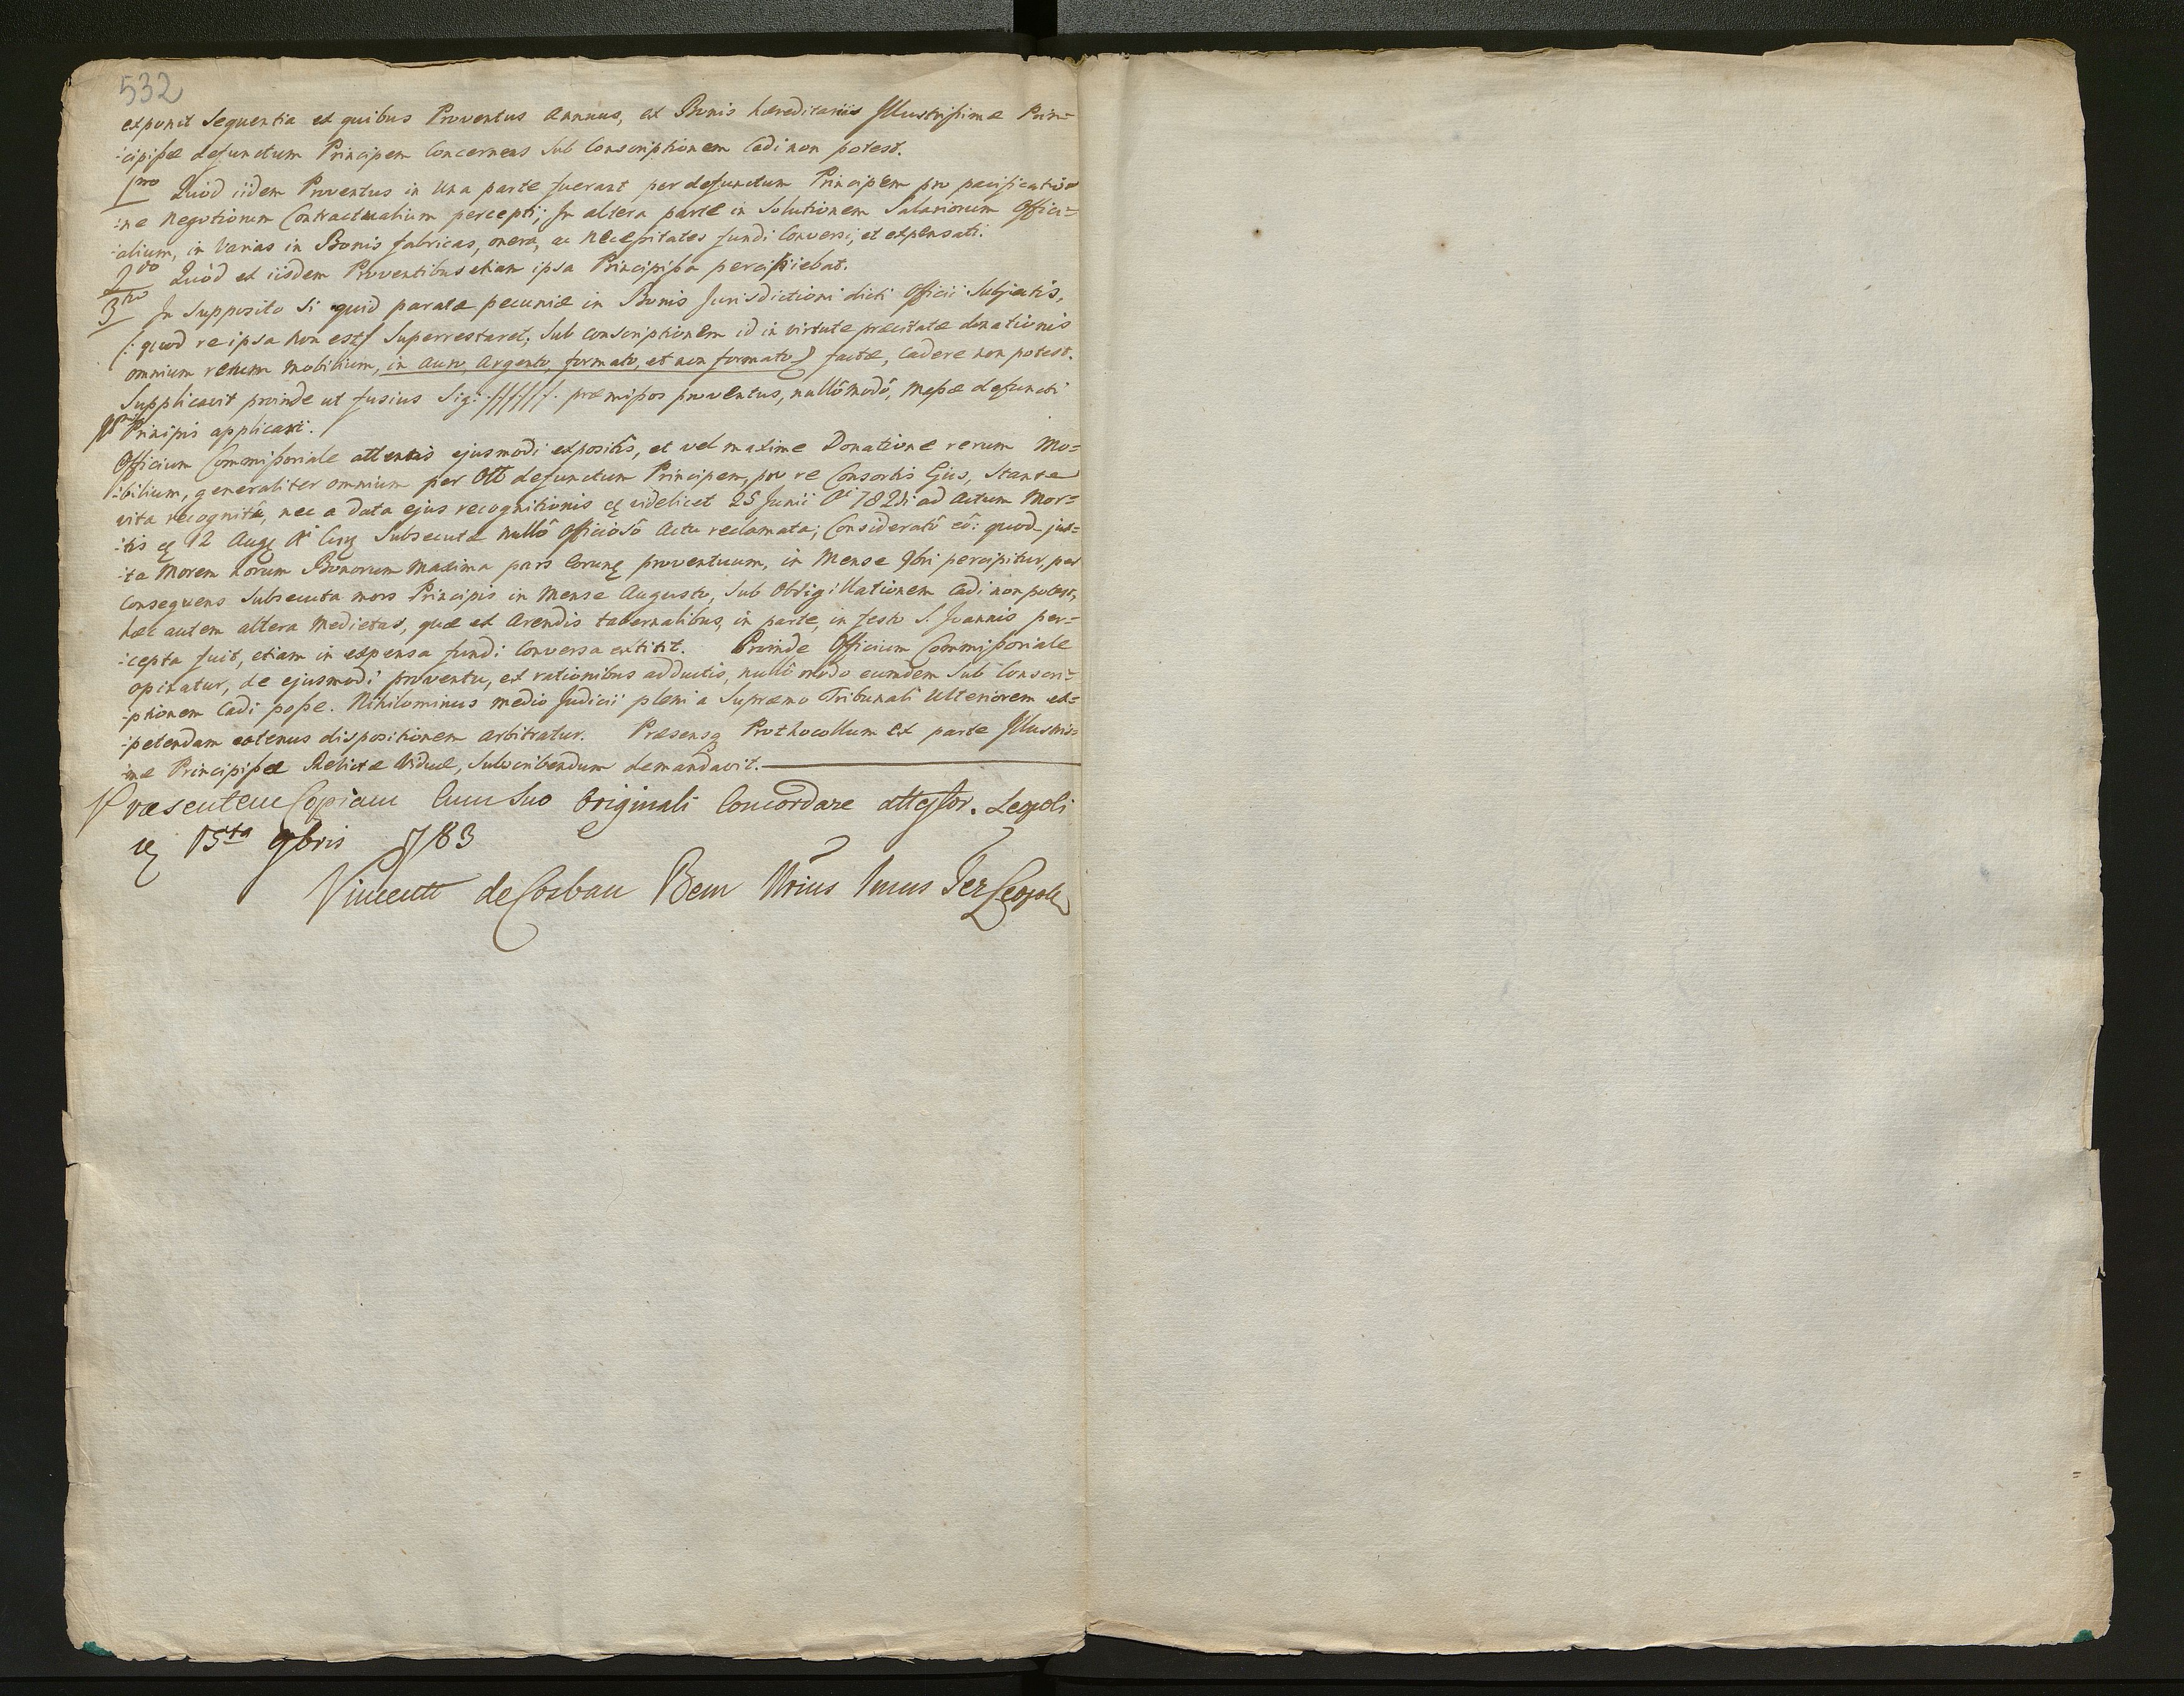 532
exponit sequentia ex quibus Proventus annuus, ex Bonis hæreditariis Illustrissimæ Prin=
:cipissæ defunctum Principem Concernens sub Conscriptionem Cadi non potest.
1mo Quòd iidem Proventus in una parte fuerant per defunctum Principem pro pacificatio
:ne negotiorum Contractualium percepti; In altera parte in Solutionem Salariorum Offici=
:alium, in varias in Bonis fabricas, onera, ac necessitates fundi Conversi, et expensati.
2do Quòd ex iisdem Proventibus etiam ipsa Principissa percipiebat.
3tio In supposito Si quid paratæ pecuniæ in Bonis Jurisdictioni dicti Officii Subjectis,
(: quod reipsa non est :) Superrestaret; Sub conscriptionem id in virtute præcitatæ donationis
omnium rerum mobilium, in auro, Argento, formato, et non formato factæ, Cadere non potest.
Supplicavit proinde ut fusius Sig: præmissos proventus, nullô modô, massæ defuncti
Principis applicari.
Officium Commissoriale attentis ejusmodi expositis, et vel maxime Donatione rerum Mo=
:bilium, generaliter omnium per Ott defunctum Principem, pro re Consortis Ejus, Stante
vita recognita, nec a data ejus recognitionis videlicet 25 Junii Ai 782di ad actum Mor=
:tis 12 Aug Ai Subsecutæ nullô Officiosô Actu reclamata; Consideratô eô: quod jux=
:ta Morem horum Bonorum maxima pars proventuum, in Mense 9bri percipitur, per
Consequens Subsecuta mors Principis in Mense Augusto, Sub Obsigillationem Cadi non potest,
hæc autem altera medietas, quæ ex Arendis tabernalibus, in parte, in festo S. Joannis per=
:cepta fuit, etiam in expensa fundi Conversa extitit. Proinde Officium Commissoriale
opinatur, de ejusmodi proventu, ex rationibus adductis, nullô modo eumdem Sub Conscri=
:ptionem Cadi posse. Nihilominus medio Judicii pleni a Supremo Tribunali Ulteriorem ex=
:petendam eatenus dispositionem arbitratur. Præsensq Prothocollum ex parte Illustris=
:mæ Principissæ Relictæ Viduæ, Subscribendum demandavit.
Præsentem Copiam Cum Suo Originali Concordare attestor. Leopoli
15ta 9bris 783
Vincenti de Bem Leopol